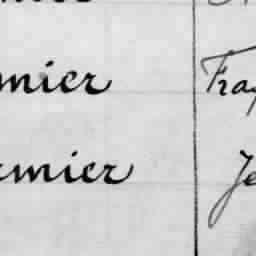 mier Fra
rmier Je